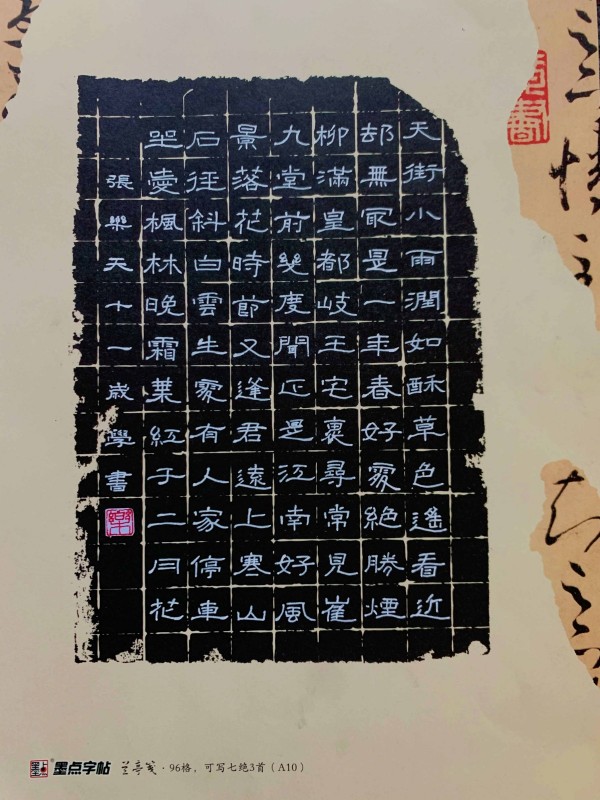 天街小雨潤如酥草色遙看近
却無最是一年春好處絕勝煙
柳滿皇都岐王宅裏尋常見崔
九堂前幾度聞正是江南好風
景落花時節又逢君遠上寒山
石徑斜白雲生處有人家停車
坐愛楓林晚霜葉紅于二月花
張樂天十一歲學書
墨点字帖 兰亭笺·96格，可写七绝3首（A10）